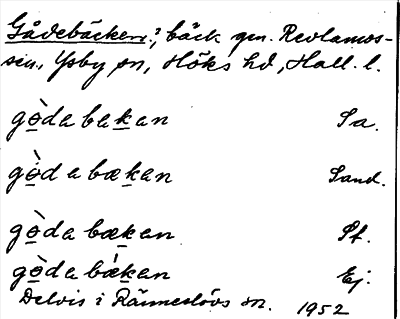 Gådebäcken?, bäck gm. Revlamos-
sen, Ysby sn, Höks hd, Hall. l.
gòdabakan Sa.
gòdabækan Sand.
gòdabækan Pf.
gòdabækan Ej.
Delvis i Ränneslövs sn. 1952